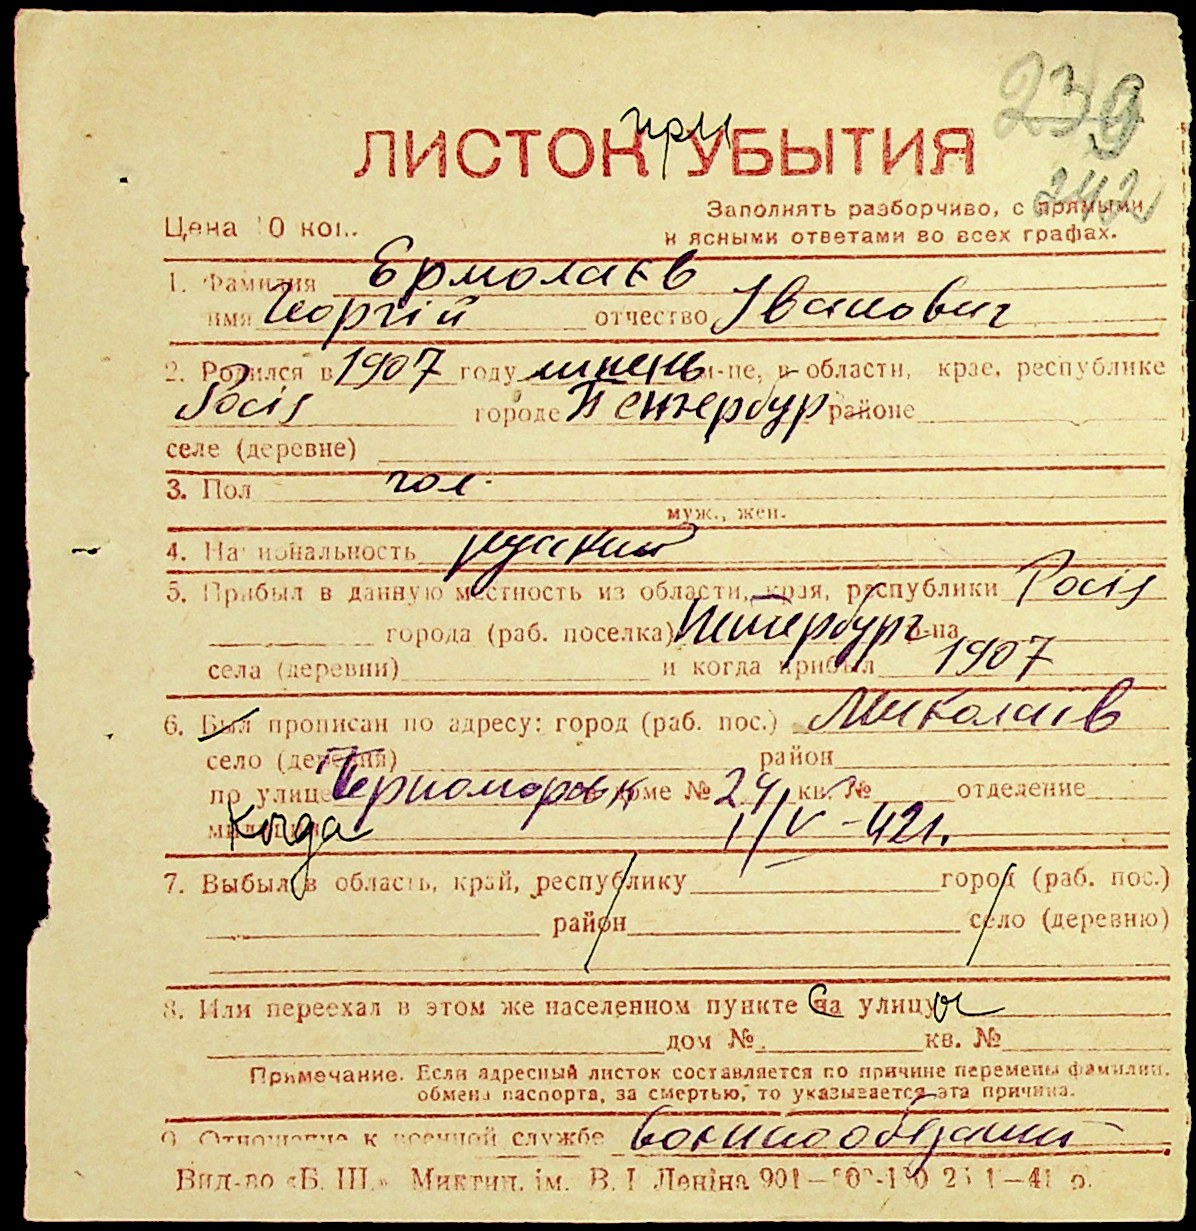 239
при
ЛИСТОК УБЫТИЯ
242
Заполнять разборчиво, с прямыми
и ясными ответами во всех графах.
Цена 10 коп.
1. Фамилия Ермолаєв
имя Георгій отчество Іванович
2. Родился в 1907 году липень м-це, в области, крае, республике
Росія городе Петербур районе
селе (деревне)
3. Пол чол.
муж., жен.
4. Национальность руский
5. Прибыл в данную местность из области, края, республики Росія
города (раб. поселка) Петербург р-на
села (деревни) и когда прибыл 1907
6. Был прописан по адресу: город (раб. пос.) Миколаїв
село (деревня) район
по улице Чорноморськ доме № 24 кв. № отделение
милиции Когда 1/V-42г.
7. Выбыл в область, край, республику город (раб. пос.)
район село (деревню)
8. Или переехал в этом же населенном пункте на с улицу ы
дом № кв. №
Примечание. Если адресный листок составляется по причине перемены фамилии,
обмена паспорта, за смертью, то указывается эта причина.
9. Отношение к военной службе
Вид-во «Б. Ш.» Миктип. ім. В. І Леніна 901